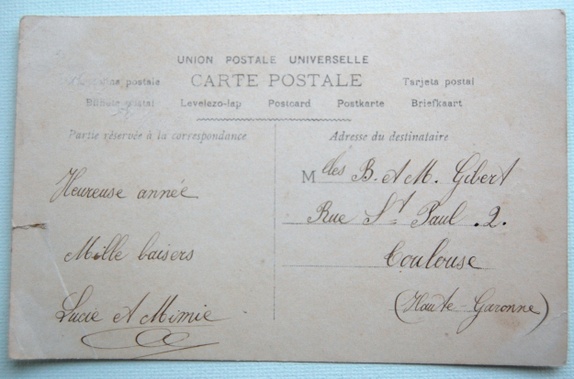 UNION POSTALE UNIVERSELLE
CARTE POSTALE
postale Tarjeta postal
postal Levelezo-lap Postcard Postkarte Briefkaart
Partie réservée à la correspondance
Adresse du destinataire
Heureuse année
Mille baisers
Lucie et Mimie
Melles B. et M. Gibert
Rue St Paul . 2.
Toulouse
(Haute-Garonne)